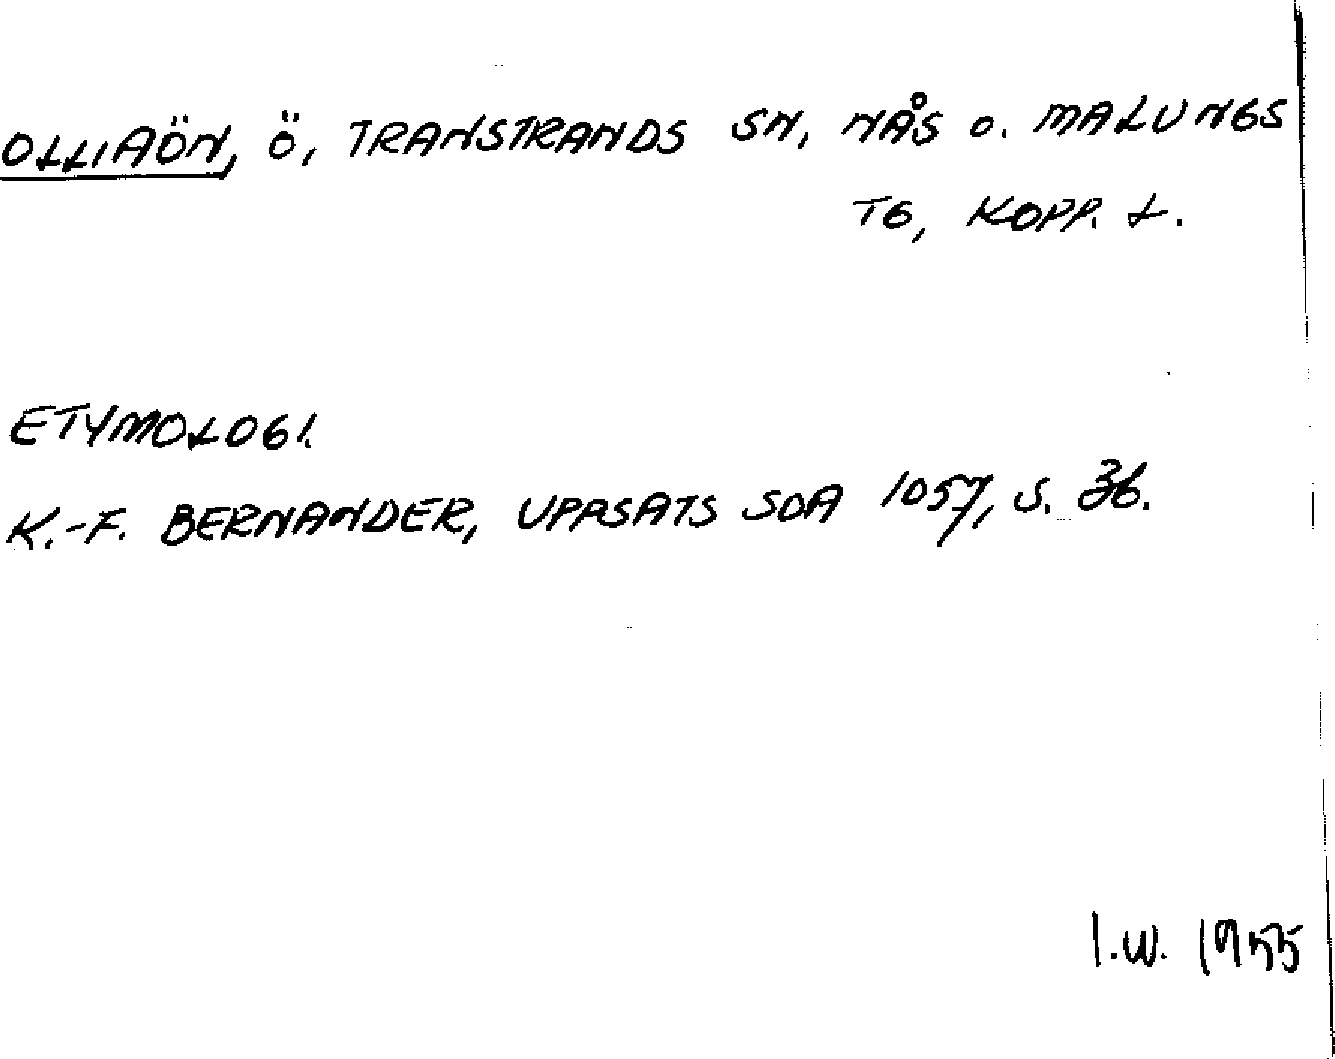 OLLIAÖN, Ö, TRANSTRANDS SN, NÅS O. MALUNGS
TG, KOPP. L.
ETYMOLOGI.
K.-F. BERNANDER, UPPSATS SOA 1057, S. 36.
I.W. 1955